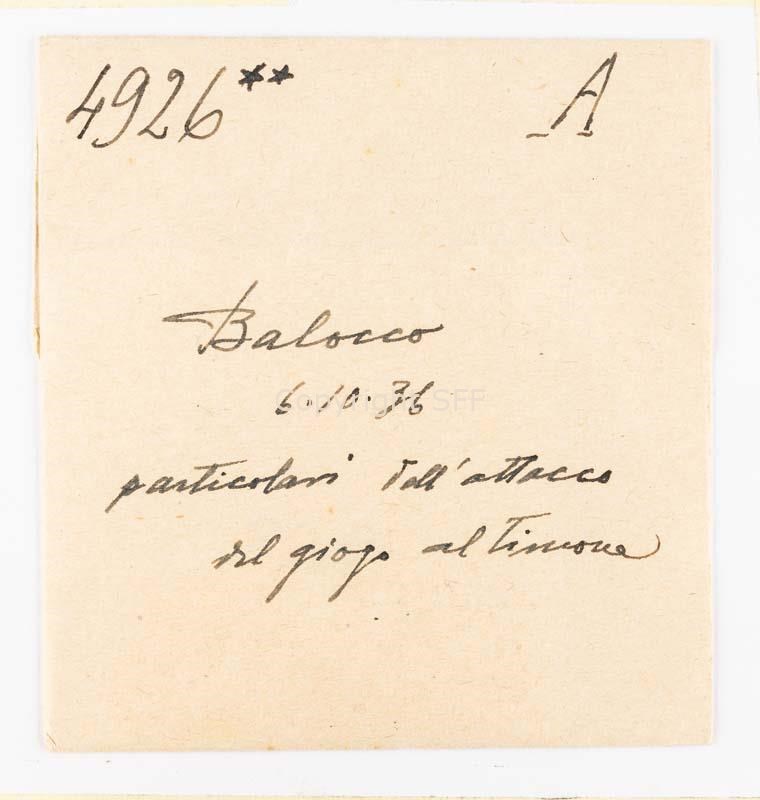 4926** A
Balocco
6.10.36
Copyright SEF
particolari dell'attacco
del giogo al timone